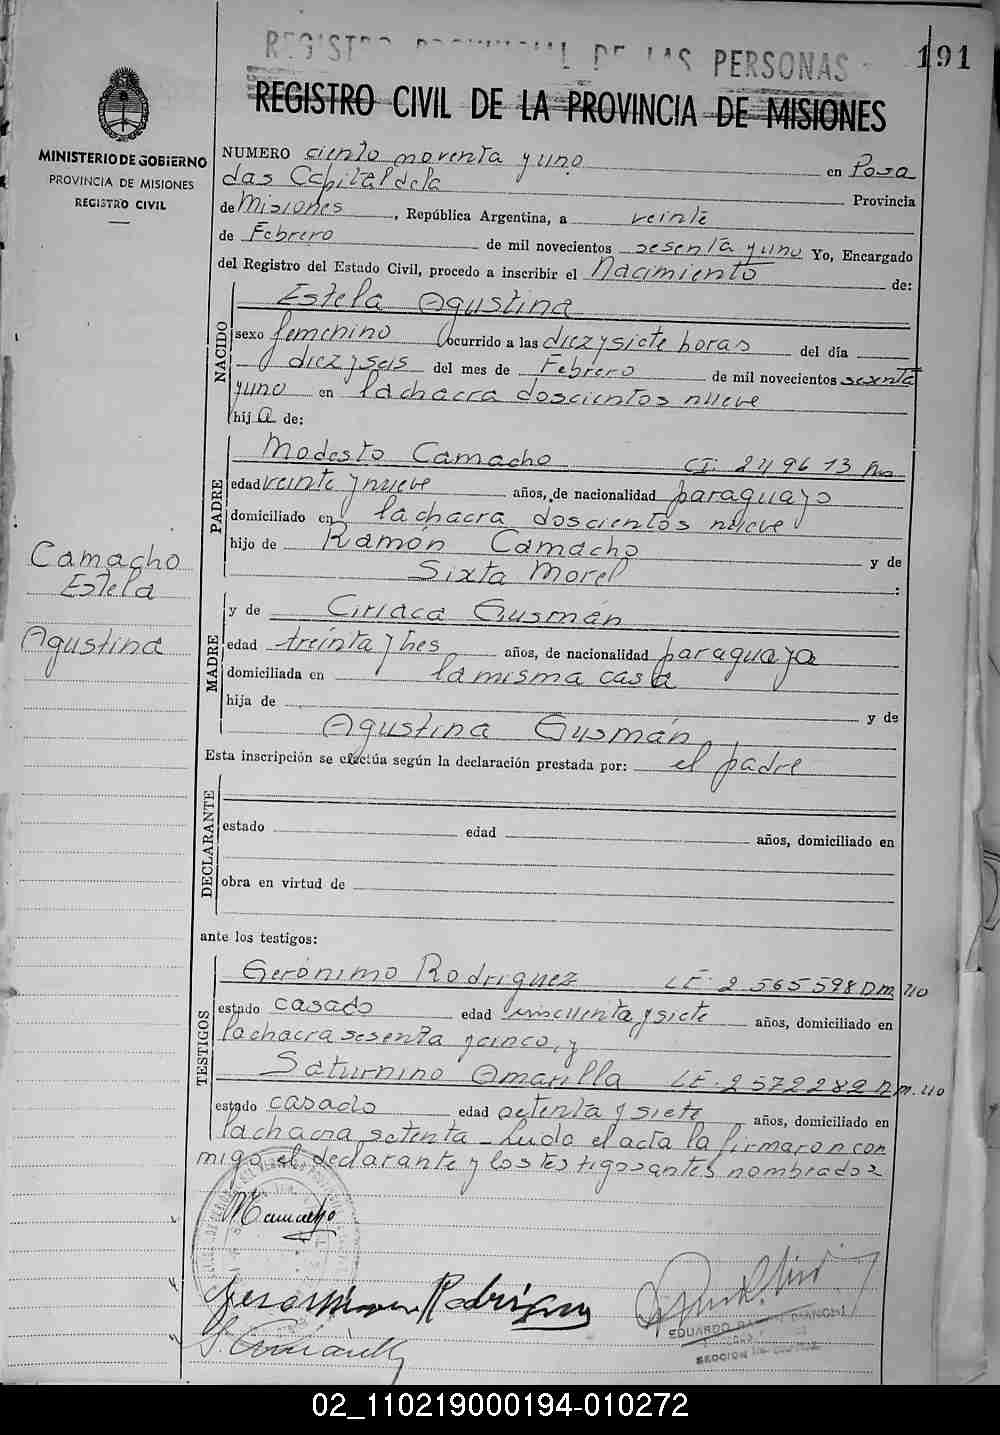 REGISTRO PROVINCIAL DE LAS PERSONAS
191
REGISTRO CIVIL DE LA PROVINCIA DE MISIONES
MINISTERIO DE GOBIERNO
PROVINCIA DE MISIONES
REGISTRO CIVIL
NUMERO ciento noventa y uno en Posa
das Capital de la Provincia
de Misiones, República Argentina, a veinte
de Febrero de mil novecientos sesenta y uno Yo, Encargado
del Registro del Estado Civil, procedo a inscribir el Nacimiento de:
NACIDO
Estela Agustina
sexo femenino ocurrido a las diez y siete horas del día
diez y seis del mes de Febrero de mil novecientos sesenta
y uno en la chacra doscientos nueve
hija de:
PADRE
Modesto Camacho CI. 249613
edad veinte y nueve años, de nacionalidad paraguayo
domiciliado en la chacra doscientos nueve
hijo de Ramón Camacho y de
Sixta Morel :
Camacho
Estela
Agustina
MADRE
y de Ciriaca Gusmán
edad treinta y tres años, de nacionalidad paraguaya
domiciliada en la misma casa
hija de y de
Agustina Gusmán
Esta inscripción se efectúa según la declaración prestada por: el padre
DECLARANTE
estado edad años, domiciliado en
obra en virtud de
ante los testigos:
TESTIGOS
Gerónimo Rodriguez LE. 2565598 D.m. 40
estado casado edad cincuenta y siete años, domiciliado en
la chacra sesenta y cinco, y
Saturnino Amarilla LE. 2572282 D.m. 40
estado casado edad setenta y siete años, domiciliado en
la chacra setenta - Leida el acta la firmaron con
migo el declarante y los testigos antes nombrados
MCamacho
Geronimo Rodriguez
S. Amarilla
EDUARDO RAMON BIANCHI
02_110219000194-010272